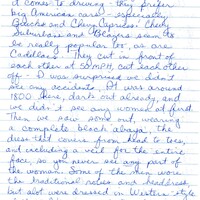 it comes to driving - they prefer
big American cars - especially
Buicks and Chevy Caprices. Chevy
Suburbans and Blazers seem to
be really popular too, as are
Cadillacs. They cut in front of
each other at 50MPH, cut each other
off - I was surprised we didn't
see any accidents. It was around
1800 there, dark out already, and
we didn't see any women at first.
Then we saw some out, wearing
a complete black abaya, the
dress that covers from head to toes,
and including a veil for the entire
face, so you never see any part of
the woman. Some of the men wore
the traditional robes and headdress,
but alot were dressed in Western-style